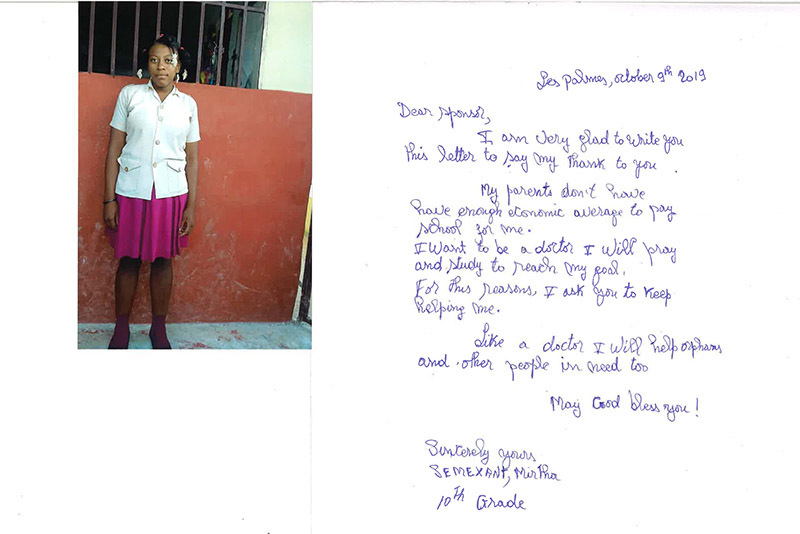 Les Palmes, october 9th 2019
Dear sponsor,
I am very glad to write you
this letter to say my thank to you .
My parents don't have
have enough economic average to pay
school for me.
I want to be a doctor I will pray
and study to reach my goal.
For this reasons, I ask you to keep
helping me.
Like a doctor I will help orphans
and other people in need too
May Good bless you!
Sincerely yours
SEMEXANT, Mirtha
10th Grade